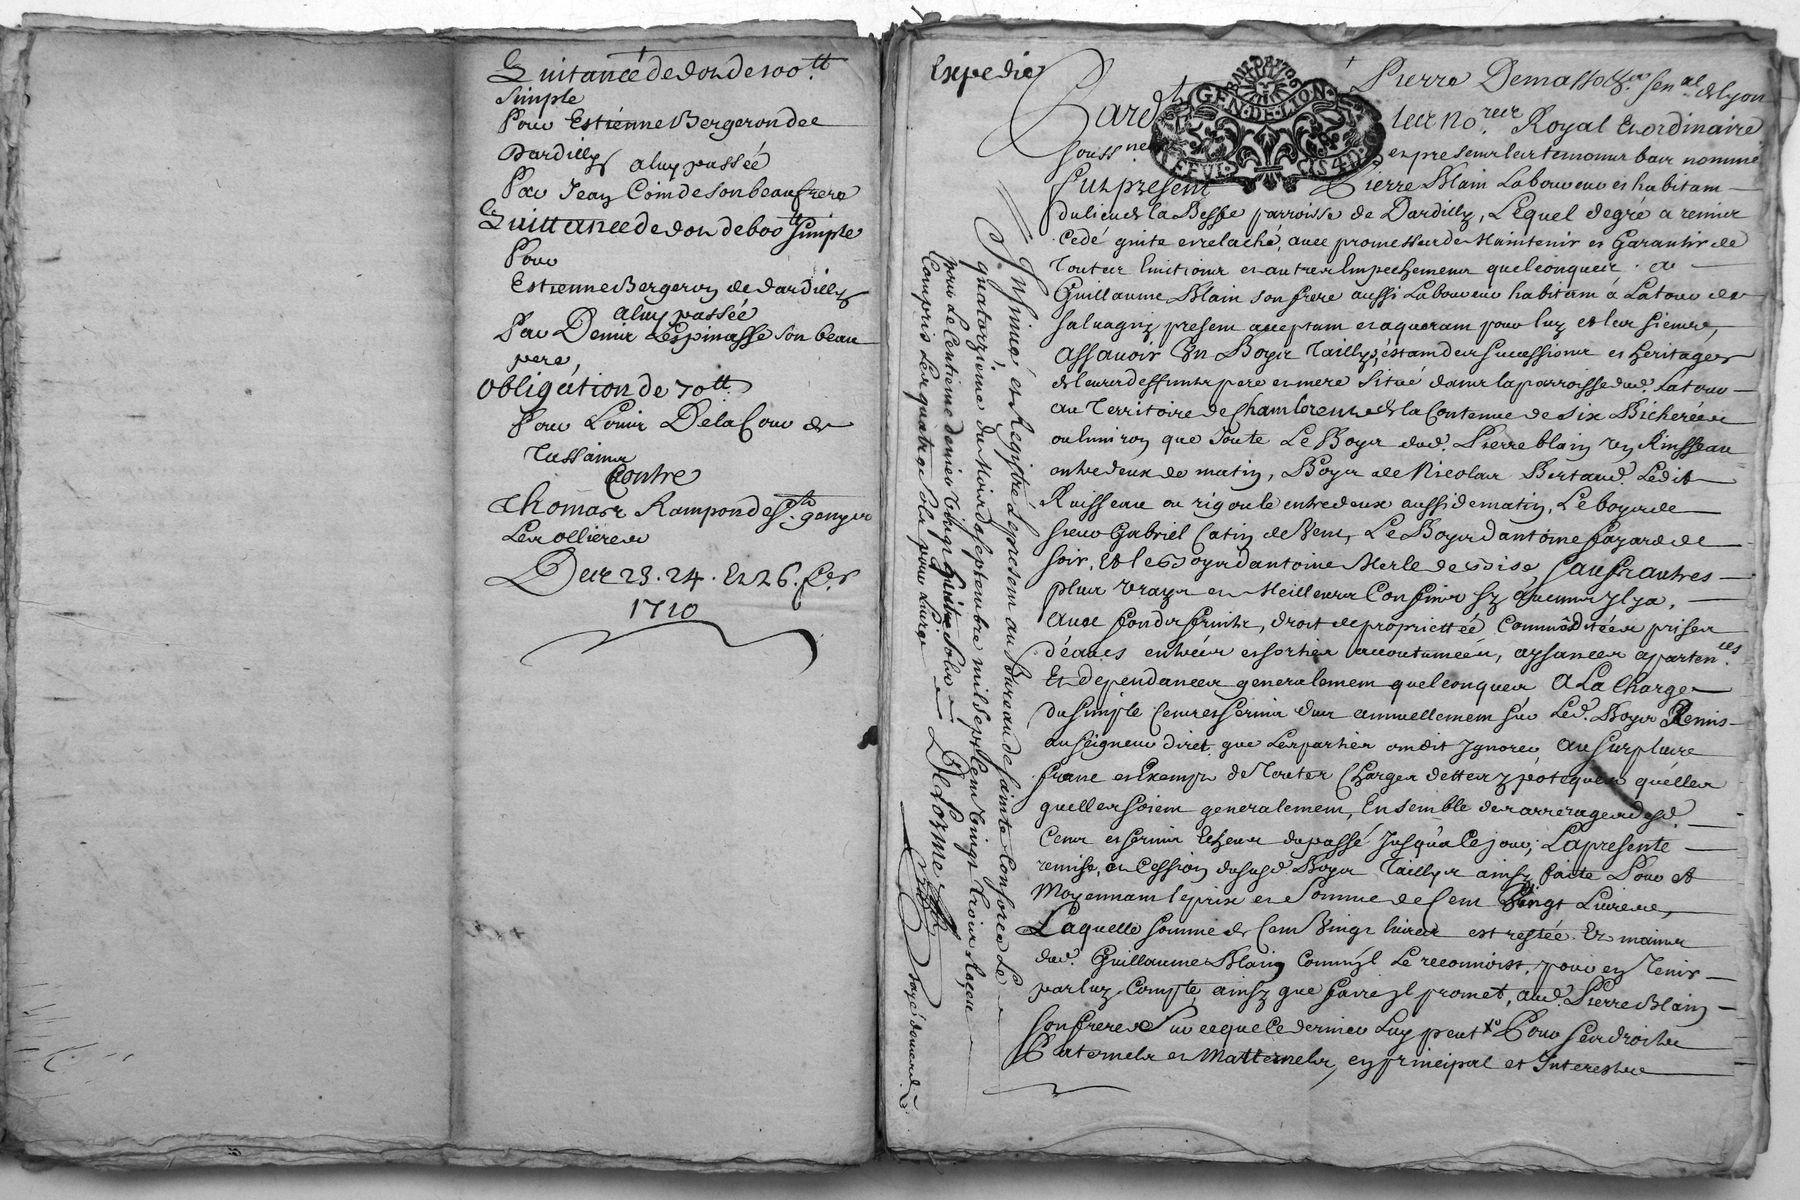 Quitance de dot de 100 tt
Simple
Pour Estienne Bergeron de
Dardilly
a luy passée
Par Jean Coin de son beau frere
Quittance de dot de 600 tt simple
Pour
Estienne Bergeron de dardilly
a luy passée
Par Denis Lespinasse son beau
pere
Obligation de 70 tt
Pour Louis Delacour de
Tassains
Contre
Thomas Rampon de St genyes
Les ollieres
Des 23. 24. Et 26. fer
1710
Expedié
Pard
Pierre Demasso sen.al de lyon
GEN. DE LION.
le no.re Royal Et ordinaire
soussné
et presens les temoins bas nommé
fut present Pierre Blain Laboureur et habitant
du lieu de la Besse parroisse de Dardilly, Lequel de gré a remis
cedé quite et relaché, avec promesse de Maintenir et Garantir de
Toutes Evitions et autres Empechemens quelconques, a
Guillaume Blain son frere aussi Laboureur habitant á Latour de
salvagny present acceptant et aquerant pour luy et les siens,
Assavoir Un Boys Taillys, estant des successions et heritages
de leurs deffunts pere et mere situé dans la parroisse dud. Latour
au Territoire de Chamlorent de la Contenue de six Bicherées
ou Environ que Joute Le Boys dud. Pierre blain un Ruisseau
entredeux de matin, Boys de Nicolas Bertaud. Ledit
Ruisseau ou rigoule entredeux aussi de matin, Le boys de
sieur Gabriel Catin de Vent, Le Boys d'antoine fayard de
soir, Et le Boys d'antoine Merle de Bise, sauf si autres
plus vrays et Meilleurs Confins sy aucuns y en a,
Avec fonds fruits, droit de proprietté Commoditées prises
d'eaues entrées et sorties accoutumées, aysances aparten.ces
Et dependances generalement quelconques A La Charge
du simple Cens et servis dus annuellement sur Led. Boys Remis
au seigneur diret que Les parties ont dit Ignorer Au surplus
franc et Exempt de Toutes Charges dettes ypoteques quelles
quelles soient generalement, Ensemble des arrerages desd.
Cens et servis Echeus du passé Jusqu'a Ce jour, La presente
remise, et Cession du susd. Boys Taillys ainsy faite Pour Et
Moyennant le prix et Somme de Cent Vingt Livres,
Laquelle somme de Cent Vingt livres est restée Es mains
dud. Guillaume Blain Comm'yl Le reconnoist, pour en Tenir
par luy Compte, ainsy que faire yl promet, aud. Pierre Blain
son frere Sur ce que Ce dernier Luy peut Pour ses droits
Paternels et Matternels, en principal et Interests
Insinué et Registré Le present au Bureau de sainte Consorce Le
quatorzieme du Mois de septembre mil sept Cent Vingt Trois Reçeu
pour Le Centieme denier Vingt huit sols
Compris Les quatre sols pour Livre
Delorme